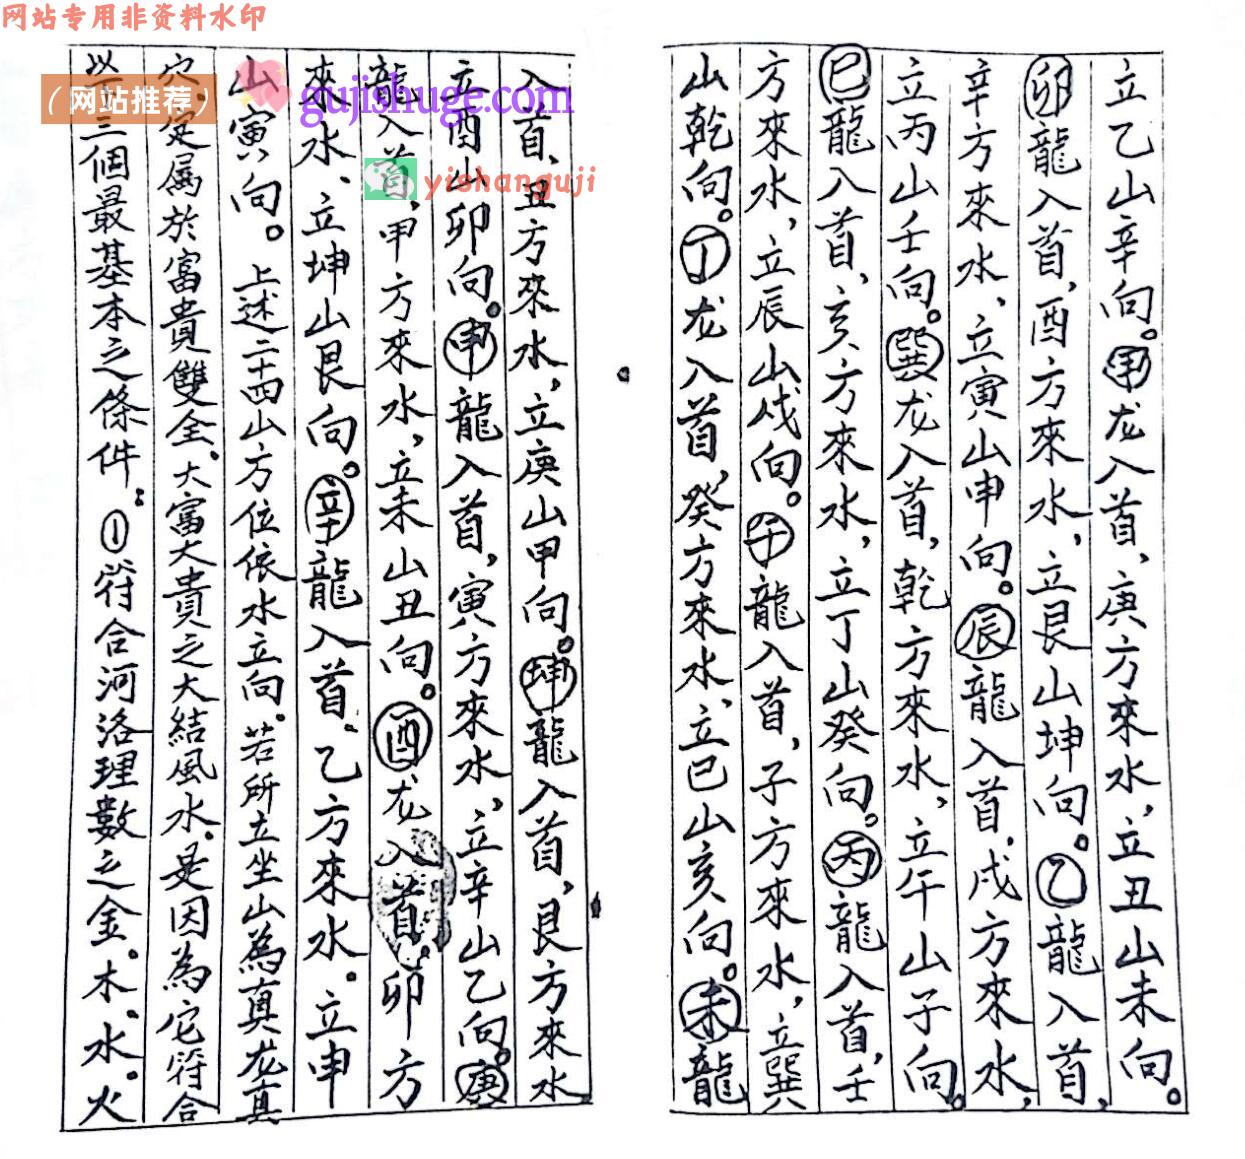 网站专用非资料水印
（网站推荐）
gujishuge.com
yishanguji
立乙山辛向。甲龙入首，庚方來水，立丑山未向。
卯龍入首，酉方來水，立艮山坤向。乙龍入首，
辛方來水，立寅山申向。辰龍入首，戌方來水，
立丙山壬向。巽龙入首，乾方來水，立午山子向。
巳龍入首，亥方來水，立丁山癸向。丙龍入首，壬
方來水，立辰山戌向。午龍入首，子方來水，立巽
山乾向。丁龙入首，癸方來水，立巳山亥向。未龍
入首，丑方來水，立庚山甲向。坤龍入首，艮方來水
立酉山卯向。申龍入首，寅方來水，立辛山乙向。庚
龍入首，甲方來水，立未山丑向。酉龙入首，卯方
來水、立坤山艮向。辛龍入首、乙方來水。立申
山寅向。上述二十四山方位依水立向。若所立坐山為真龙真
穴，定属於富貴雙全、大富大貴之大結風水，是因為它符合
三個最基本之條件：①符合河洛理數之金。木。水。火